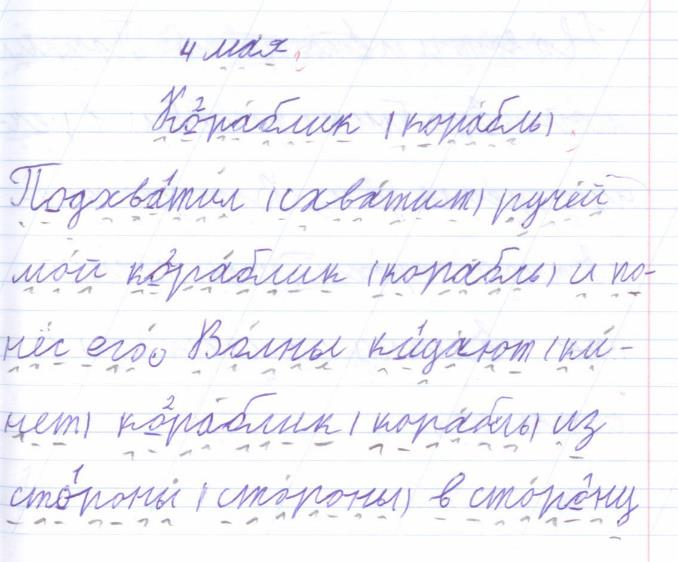 4 мая.
Кораблик (корабль)
Подхватил (схватит) ручей
мой кораблик (корабль) и по-
нёс его. Волны кидают (ки-
нет) кораблик (корабль) из
стороны (стороны) в сторону